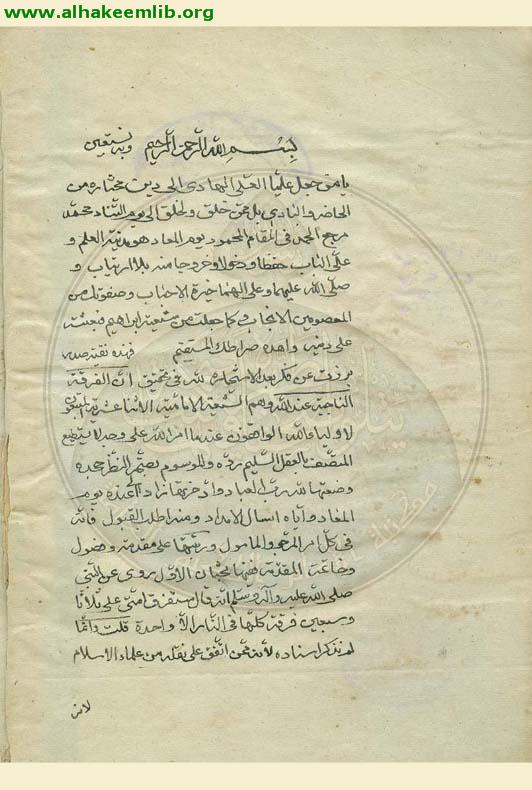 www.alhakeemlib.org
بسم الله الرحمن الرحيم وبه نستعين
يا من جعل عليا العلي الهادي الى دين مختاره من
الحاضر والبادي بل عن خلق ولخلق الى يوم التناد محمد
مرجع الحمد في المقام المحمود يوم المعاد هو مدينة العلم و
على الباب حفظا ودخولا وخروجا منه بلا ارتياب و
صلى الله عليهما وعلى الهما خيرة الاحباب وصفوتك من
المعصومين الانجاب وكما جعلت من شيعته ابراهيم
على دينه واهده صراطك المستقيم فهذه
برزت عن فكر بعد الاستخارة لله في تحقيق ان الفرقة
الناجية عند الله هم الشيعة الامامية الاثنا عشرية
لاولياء الله الواقفون عند ما امر الله على وجه لا يستطيع
المصنف بالعقل السليم رده والموسوم بصحة النظر جحده
وضعتها لله رب العباد وادخرتها زادا ليوم
المعاد واياه اسال الامداد ومنه اطلب القبول فانه
في كل امر المرجو والمامول ورتبتها على مقدمة وفصول
وخاتمة المقدمة ففيها بحثان الاول روى عن النبي
صلى الله عليه وآله وسلم انه قال ستفترق امتي على ثلاثا
وسبعين فرقة كلها في النار الا واحدة قلت وانما
لم نذكر اسناده لانه ممن اتفق على نقله من علماء الاسلام
لان